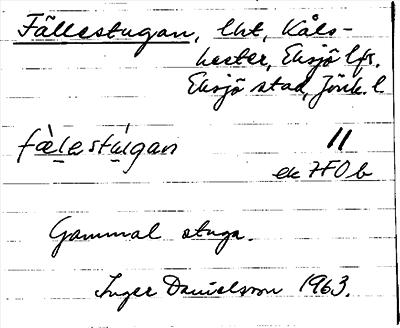 Fällestugan, lht, Kåls-
hester, Eksjö lfs.
Eksjö stad, Jönk. l
fä̀lestúgan 11
ek 7F0b
Gammal stuga.
Inger Danielsson 1963.